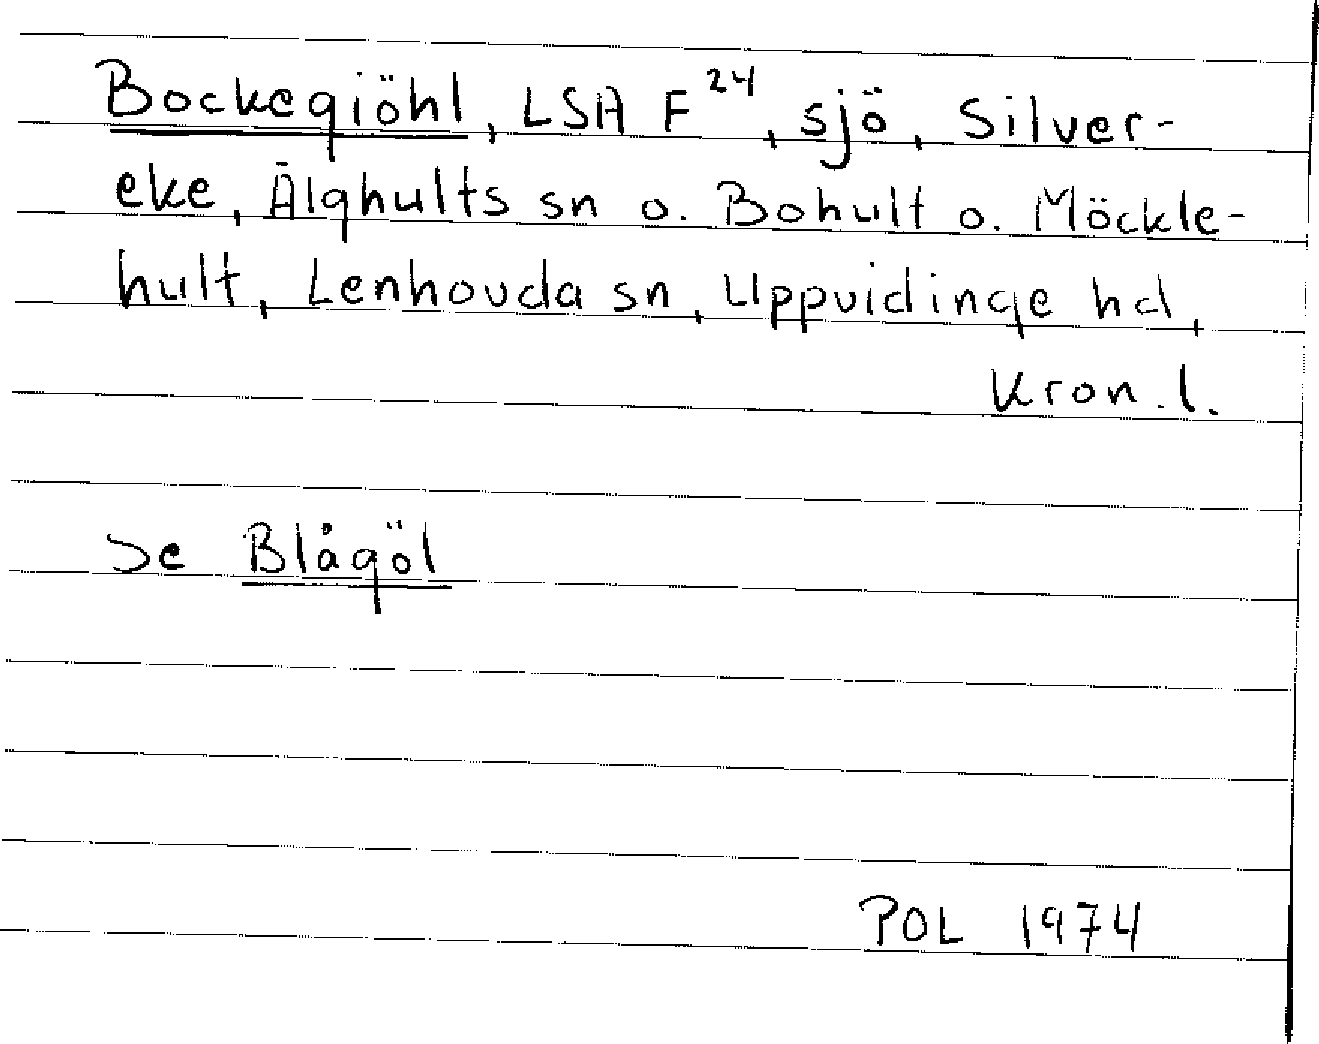 Bockegiöhl, LSA F 24, sjö, Silver-
eke, Älghults sn o. Bohult o. Möckle-
hult, Lenhovda sn, Uppvidinge hd,
Kron. l.
Se Blågöl
POL 1974